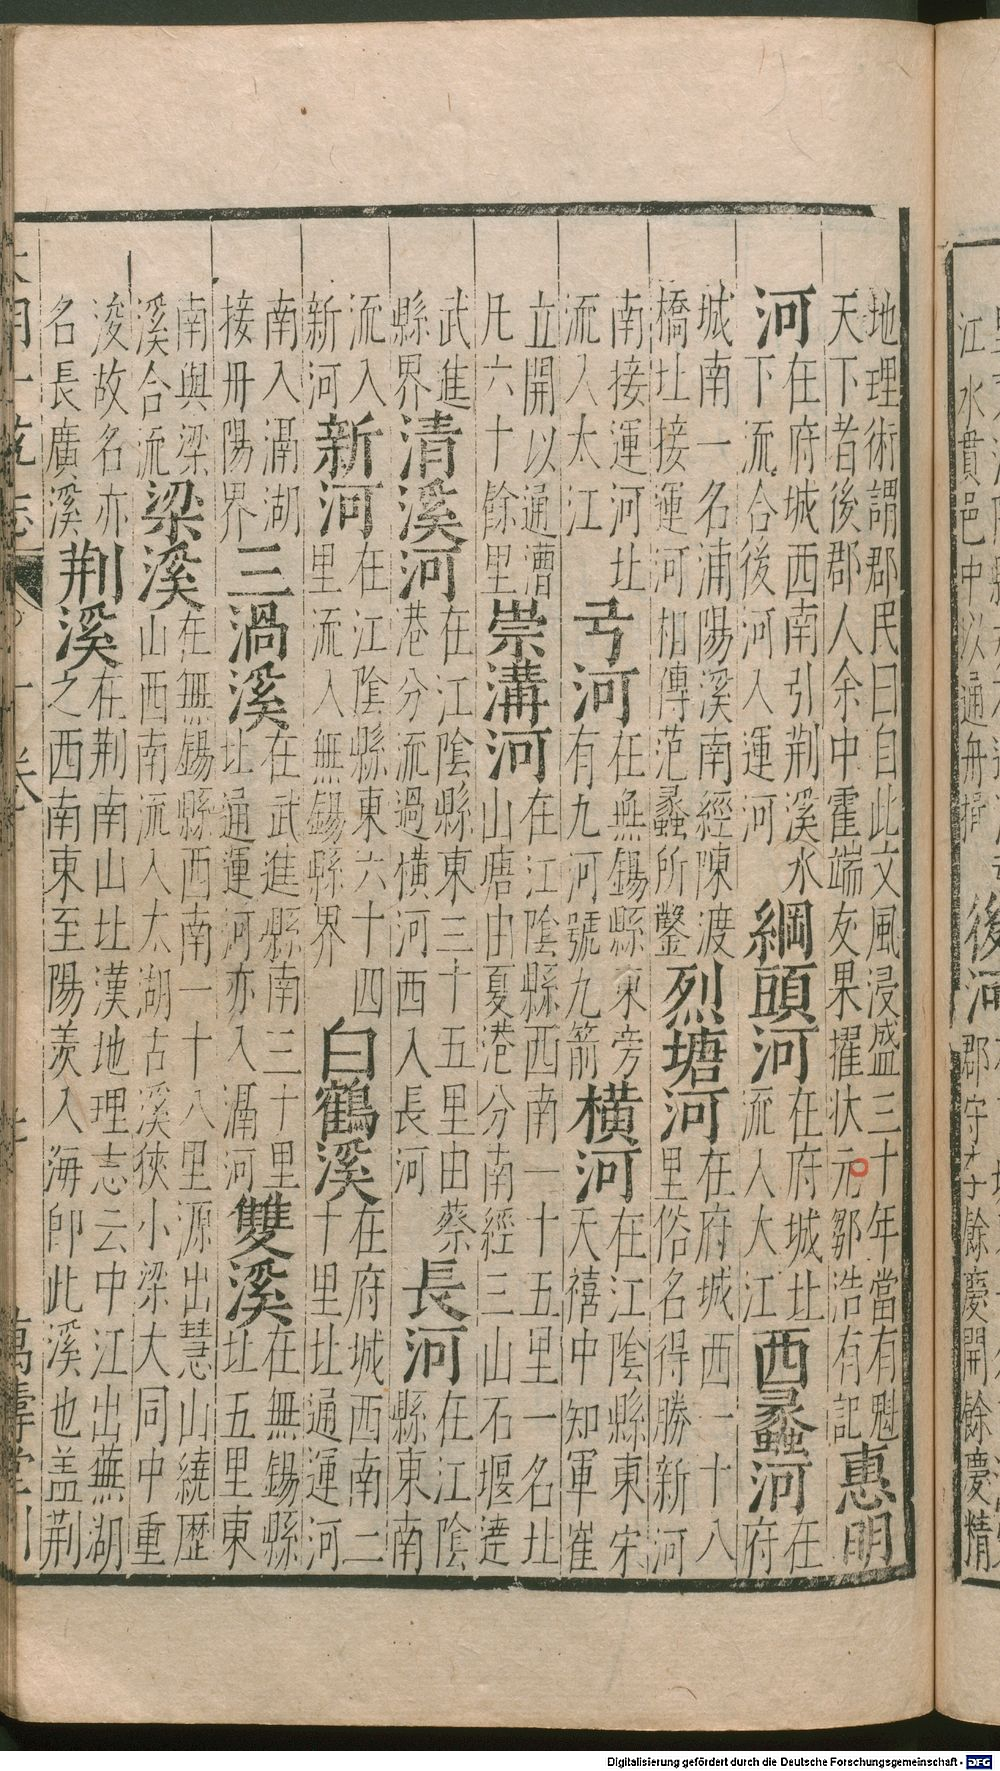 地理術謂郡民曰自此文風浸盛三十年當有魁
天下者後郡人余中霍端友果擢狀元鄒浩有記
惠明
河
在府城西南引荆溪水
下流合後河入運河
綱頭河
在府城北
流入大江
西蠡河
在
府
城南一名浦陽溪南經陳渡
橋北接運河相傳范蠡所鑿
烈塘河
在府城西一十八
里俗名得勝新河
南接運河北
流入大江
弓河
在無錫縣東旁
有九河號九箭
橫河
在江陰縣東宋
天禧中知軍崔
立開以通漕
凡六十餘里
崇溝河
在江陰縣西南一十五里一名北
山塘由夏港分南經三山石堰達
武進
縣界
清溪河
在江陰縣東三十五里由蔡
港分流過橫河西入長河
長河
在江陰
縣東南
流入
新河
新河
在江陰縣東六十四
里流入無錫縣界
白鶴溪
在府城西南二
十里北通運河
南入滆湖
接丹陽界
三渦溪
在武進縣南三十里
北通運河亦入滆河
雙溪
在無錫縣
北五里東
南與梁
溪合流
梁溪
在無錫縣西南一十八里源出慧山繞歷
山西南流入太湖古溪狹小梁大同中重
浚故名亦
名長廣溪
荆溪
在荆南山北漢地理志云中江出蕪湖
之西南東至陽羡入海即此溪也盖荆
江水貫邑中以通舟楫
後河
郡守李餘慶開餘慶精
Digitalisierung gefördert durch die Deutsche Forschungsgemeinschaft - DFG